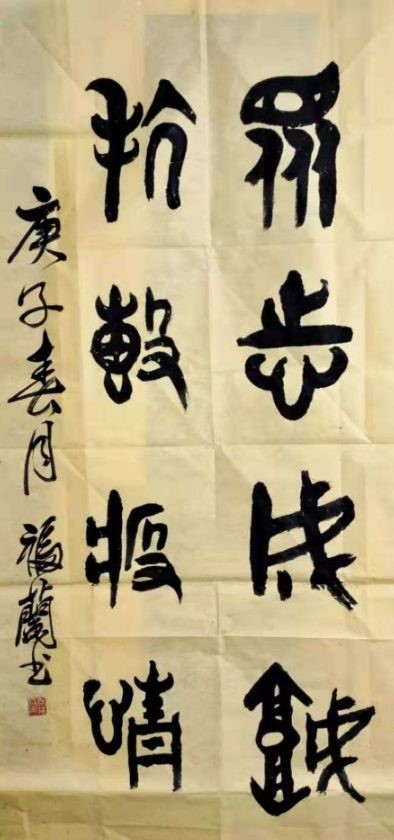 眾志成城
抗擊疫情
庚子春月福蘭书